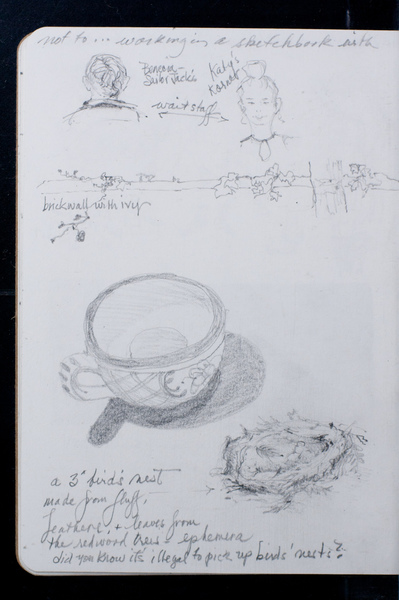 not to... working in a sketchbook with
Katy!
wait staff
brick wall with ivy
a 3" bird's nest
made from fluff,
feathers + leaves from
the redwood trees ephemera
did you know it's illegal to pick up birds' nests?